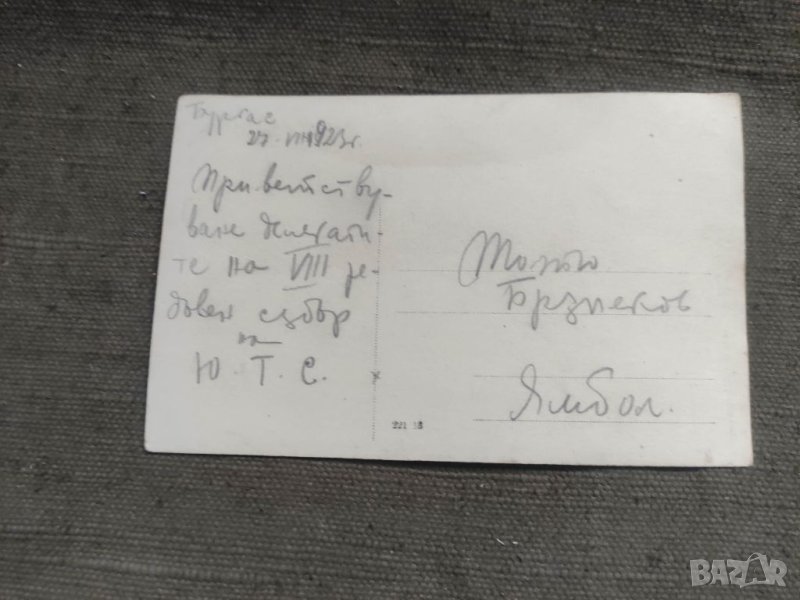 Бургас
27. VIII 923 г.
Приветству-
ване делегати-
те на VIII ре-
довен събор
на
Ю. Т. С.
Ямбол.
221 18
BAZAR